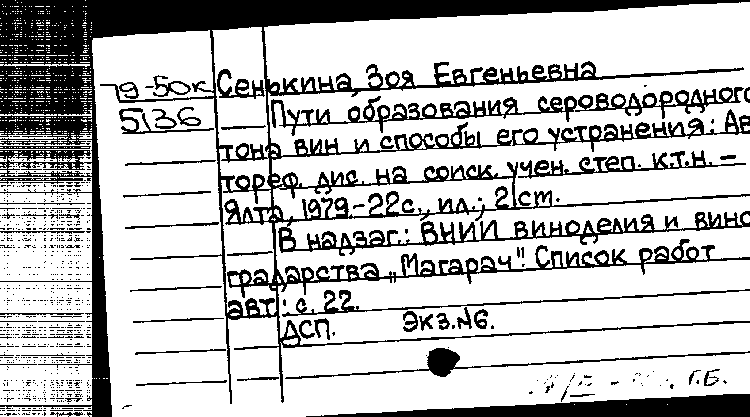 79-50к Сенькина, Зоя Евгеньевна
5136 Пути образования сероводородного
тона вин и способы его устранения: Ав
тореф. дис. на соиск. учен. степ. к.т.н. –
Ялта, 1979.-22с., ил.; 21ст.
В надзаг.: ВНИИ виноделия и вино
градарства „Магарач". Список работ
авт.: с. 22.
ДСП. Экз.№6.
Г.Б.